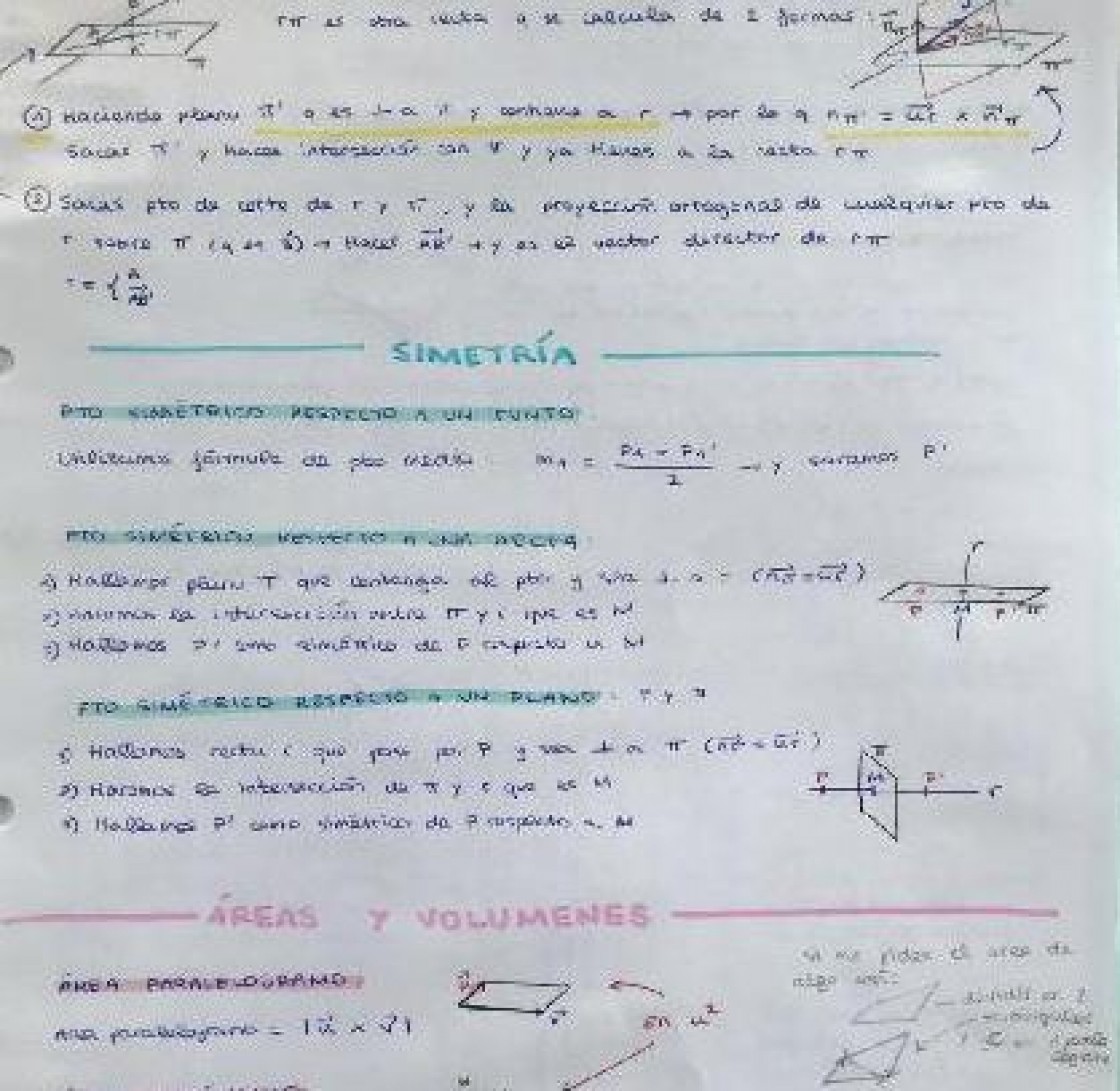 rπ es otra recta q se calcula de 2 formas:
① Haciendo plano π' q es ⊥ a π y contiene a r → por lo q nπ' = ur × nπ
Sacas π' y haces intersección con π y ya tienes a la recta rπ
② Sacas pto de corte de r y π, y la proyección ortogonal de cualquier pto de
r sobre π (q es B') → Haces AB' → y es el vector director de rπ
r = { A AB'
SIMETRÍA
PTO SIMÉTRICO RESPECTO A UN PUNTO:
Utilizamos fórmula de pto medio: m₁ = P₁ - P₁' / 2 → y sacamos P'
PTO SIMÉTRICO RESPECTO A UNA RECTA:
1) Hallamos plano π que contenga al pto y sea ⊥ a r (nπ = ur)
2) Hacemos la intersección entre π y r que es M
3) Hallamos P' como simétrico de P respecto a M
r
P M P' π
PTO SIMÉTRICO RESPECTO A UN PLANO: P y π
1) Hallamos recta r que pase por P y sea ⊥ a π (nπ = ur)
2) Hacemos la intersección de π y r que es M
3) Hallamos P' como simétrico de P respecto a M
P M π P' r
ÁREAS Y VOLUMENES
si me piden el area de
algo así:
ÁREA PARALELOGRAMO:
Area paralelogramo = |u × v|
en u²
dividir en 2
triangulos